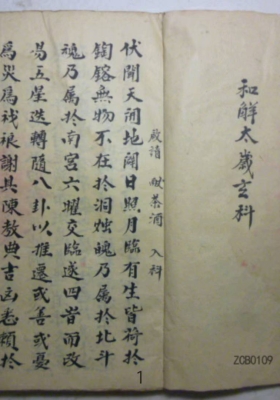 和解太歲玄科
啟請 献茶酒 入科
伏聞天開地闢日照月臨有生皆荷於
鈞鎔無物不在於洞燭魄乃属於北斗
魂乃属於南宮六曜交臨遂四旹而改
易五星迭轉随八卦以推遷或善或憂
為災為祥 謝其陳教典吉凶悉頼於
Z080109
1